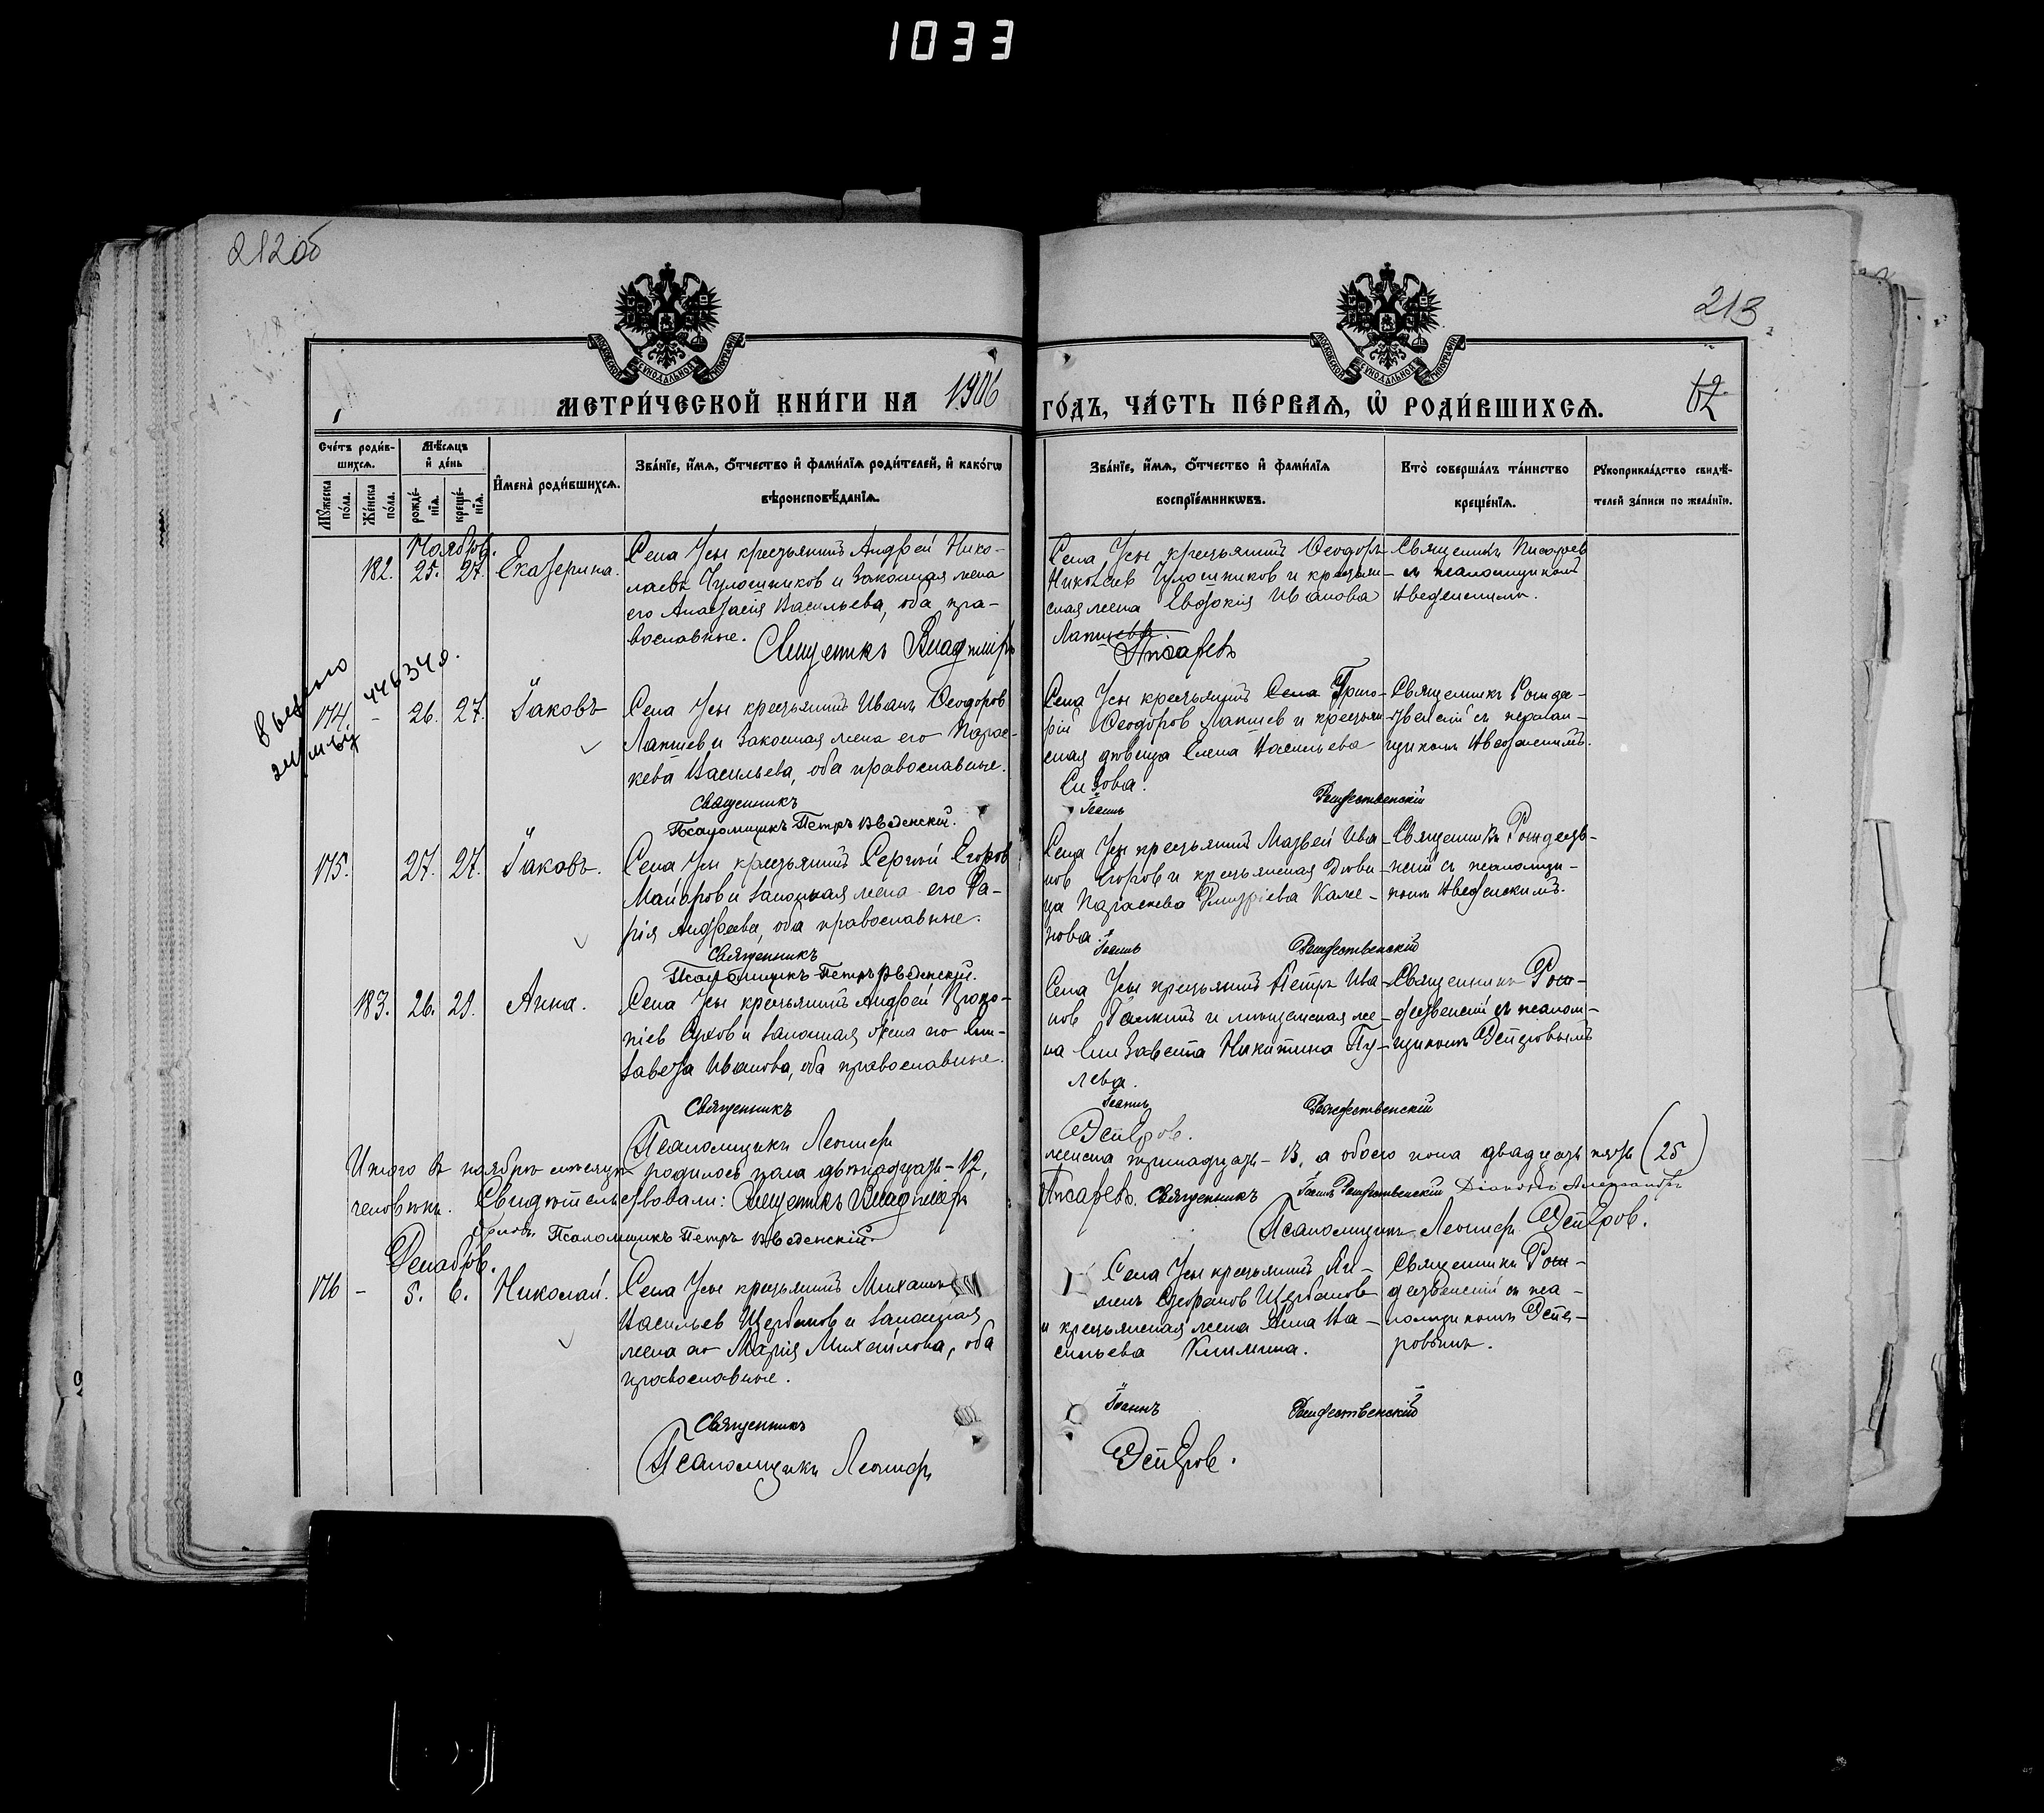 1033
212об
213
МОСКОВСКОЙ СѴНОДАЛЬНОЙ ТИПОГРАФІИ
МОСКОВСКОЙ СѴНОДАЛЬНОЙ ТИПОГРАФІИ
МЕТРИ́ЧЕСКОЙ КНИ́ГИ НА 1906
ГО́ДЪ, ЧА́СТЬ ПЕ́РВАѦ, Ѡ҆ РОДИ́ВШИХСѦ.
62
Сче́тъ роди́в-
шихсѧ.
Мꙋ́жеска по́ла.
Же́нска по́ла.
Мѣ́сѧцъ
и҆ де́нь
рожде́-
нїѧ.
креще́-
нїѧ.
И҆мена̀ роди́вшихсѧ.
Зва́нїе, и҆́мѧ, ѻ҆́тчество и҆ фами́лїѧ роди́телей, и҆ како́гѡ
вѣроисповѣ́данїѧ.
Зва́нїе, и҆́мѧ, ѻ҆́тчество и҆ фами́лїѧ
воспрїе́мникѡвъ.
Кто̀ соверша́лъ та́инство
креще́нїѧ.
Рꙋкоприкла́дство свидѣ́-
телей за́писи по жела́нїю.
Ноябрь.
182. 25. 27. Екатерина.
Села Усы крестьянинъ Андрей Нико-
лаевъ Чулошников и законная жена
его Анастасія Васильева, оба пра-
вославные.
Священникъ Владиміръ
Села Усы крестьянинъ Ѳеодоръ
Николаев Чулошников и крестьян-
ская жена Евдокія Иванова
Лапшева.
Писаревъ
Священникъ Писарев
съ псаломщикомъ
Введенскимъ.
174. - 26. 27. Іаковъ
Села Усы крестьянинъ Иванъ Ѳеодоров
Лапшев и законная жена его Парас-
кева Васильева, оба православные.
Священникъ
Псаломщикъ Петръ Введенскій.
Села Усы крестьянинъ Села Григо-
рій Ѳеодоров Лапшев и крестьян-
ская дѣвица Елена Васильева
Сизова.
Іоаннъ Рождественскій
Священникъ Рожде-
ственскій съ псалом-
щикомъ Введенскимъ.
175. 27. 27. Іаковъ.
Села Усы крестьянинъ Сергѣй Егоров
Майоров и законная жена его Да-
рія Андреева, оба православные.
Священникъ
Псаломщикъ Петръ Введенскій.
Села Усы крестьянинъ Матвей Ива-
нов Егоров и крестьянская дѣви-
ца Параскева Дмитріева Кале-
нова.
Іоаннъ Рождественскій
Священникъ Рождест-
венскій съ псаломщи-
комъ Введенскимъ.
183. 26. 29. Анна.
Села Усы крестьянинъ Андрей Проко-
піев Сухов и законная жена его Ели-
завета Иванова, оба православные.
Священникъ
Псаломщикъ Леонидъ
Села Усы крестьянинъ Петръ Ива-
нов Галкинъ и мѣщанская же-
на Елизавета Никитина Пу-
лева.
Іоаннъ Рождественскій
Священникъ Рож-
дественскій съ псалом-
щикомъ
Итого въ ноябрѣ мѣсяцѣ родилось пола двѣнадцать - 12,
женска тринадцать - 13, а обоего пола двадцать пять (25)
человѣкъ. Свидѣтельствовали: Священникъ Владиміръ
Писаревъ. Священникъ Іоаннъ Рождественскій Діаконъ Александръ
Псаломщикъ Петръ Введенскій.
Псаломщикъ Леонидъ
Декабрь.
176 - 5. 6. Николай.
Села Усы крестьянинъ Михаилъ
Васильев Щербаков и законная
жена его Марія Михайлова, оба
православные.
Священникъ
Псаломщикъ Леонидъ
Села Усы крестьянинъ
Щербаков
и крестьянская жена Анна Ва-
сильева Климина.
Іоаннъ Рождественскій
Священникъ Рож-
дественскій съ пса-
ломщикомъ